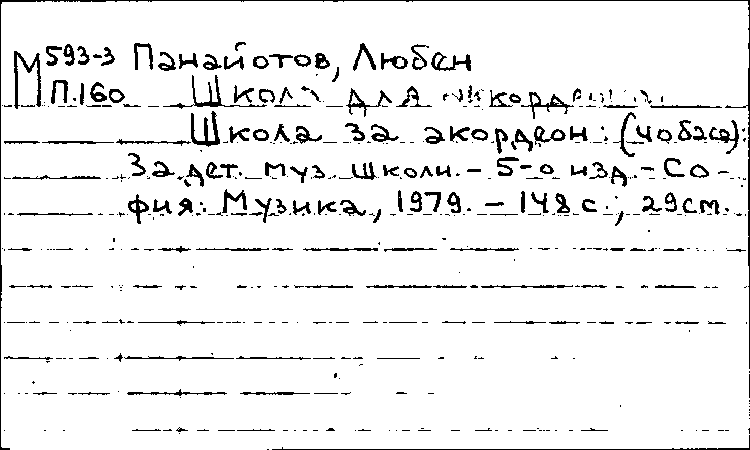 М 593-3 Панайотов, Любен
П.160 Школа для аккордеона.
Школа за акордеон: (40 баса):
За дет. муз. школи. - 5-о изд. - Со-
фия: Музика, 1979. - 148 с.; 29 см.